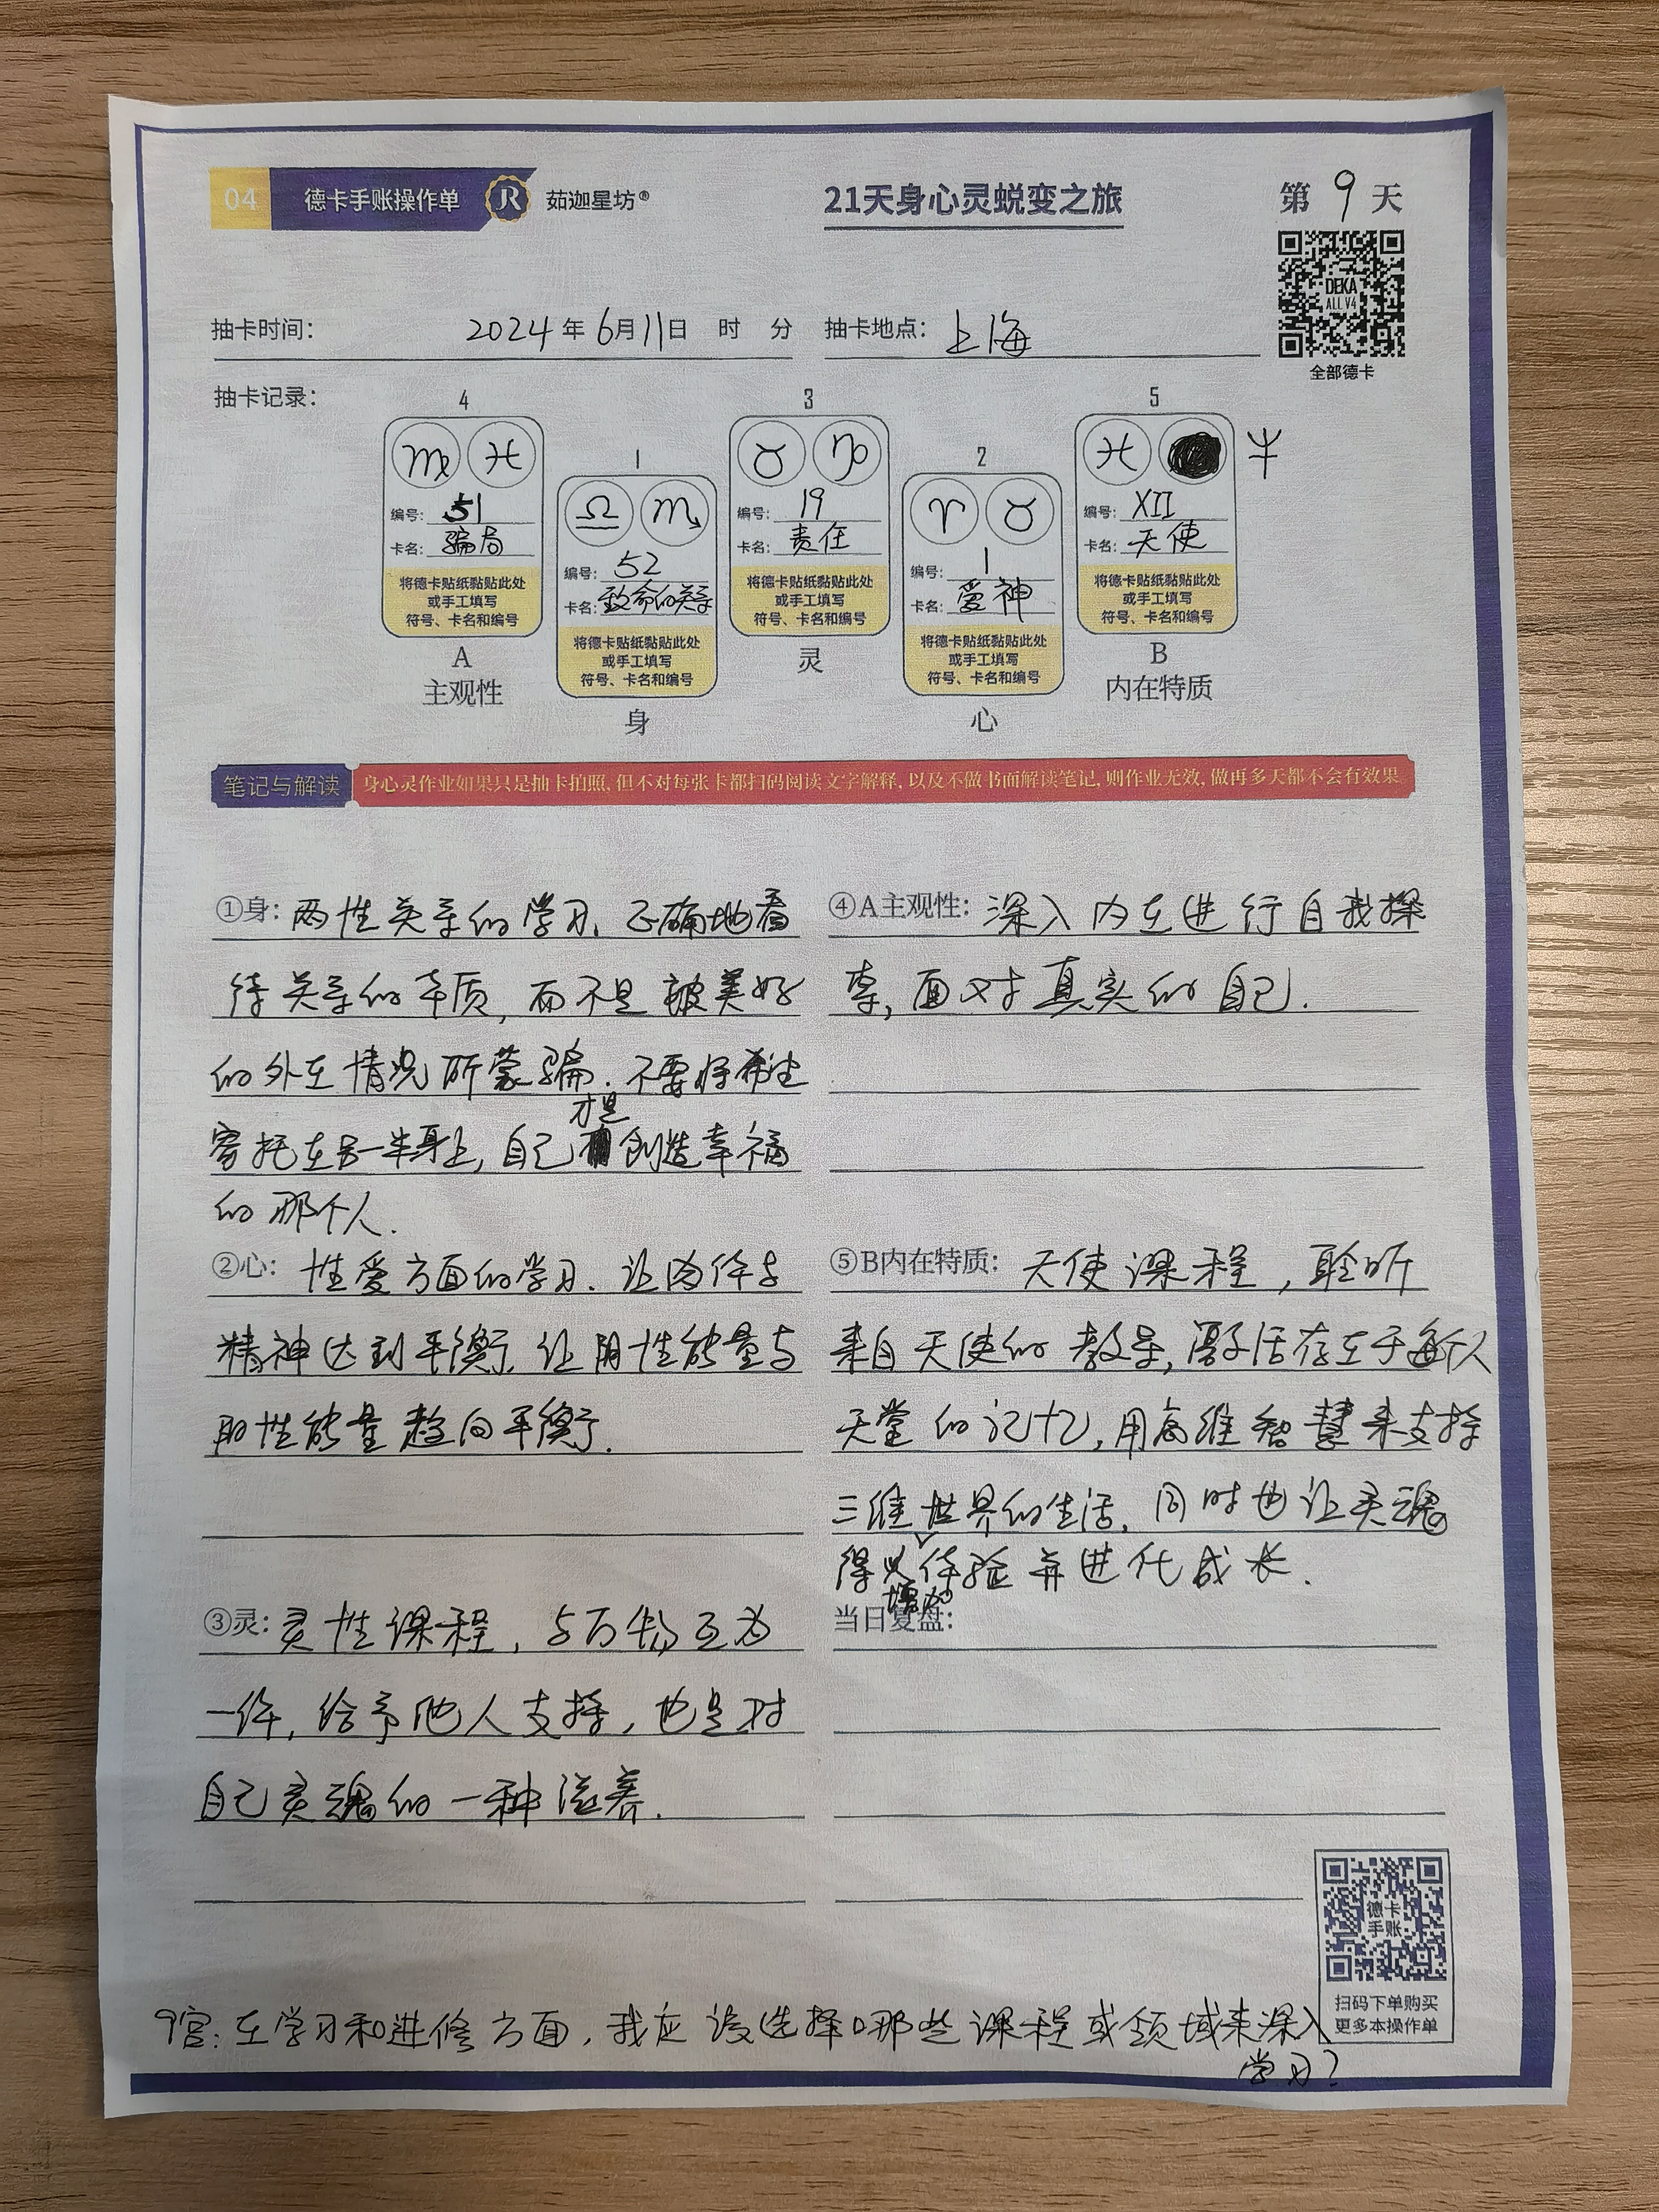 04 德卡手账操作单 JR 茹迦星坊®
21天身心灵蜕变之旅
第 9 天
DEKA
ALL V4
全部德卡
抽卡时间： 2024 年 6 月 11 日 时 分 抽卡地点： 上海
抽卡记录：
4
♍ ♓
编号： 51
卡名： 骗局
将德卡贴纸黏贴此处
或手工填写
符号、卡名和编号
A
主观性
1
♎ ♏
编号： 52
卡名： 致命的关系
将德卡贴纸黏贴此处
或手工填写
符号、卡名和编号
身
3
♉ ♑
编号： 19
卡名： 责任
将德卡贴纸黏贴此处
或手工填写
符号、卡名和编号
灵
2
♈ ♉
编号： 1
卡名： 爱神
将德卡贴纸黏贴此处
或手工填写
符号、卡名和编号
心
5
♓
编号： XII
卡名： 天使
将德卡贴纸黏贴此处
或手工填写
符号、卡名和编号
B
内在特质
笔记与解读 身心灵作业如果只是抽卡拍照，但不对每张卡都扫码阅读文字解释，以及不做书面解读笔记，则作业无效，做再多天都不会有效果
①身： 两性关系的学习、正确地看
待关系的本质，而不是被美好
的外在情况所蒙骗．不要将希望
寄托在另一半身上，自己才是创造幸福
的那个人．
②心： 性爱方面的学习．让肉体与
精神达到平衡，让阴性能量与
阳性能量趋向平衡．
③灵： 灵性课程，与万物互为
一体，给予他人支持，也是对
自己灵魂的一种滋养．
④A主观性： 深入内在进行自我探
索，面对真实的自己．
⑤B内在特质： 天使课程，聆听
来自天使的教导，激活存在于每个人
天堂的记忆，用高维智慧来支持
三维世界的生活，同时也让灵魂
得以增加体验并进化成长．
当日复盘：
德卡
手账
扫码下单购买
更多本操作单
9宫：在学习和进修方面，我应该选择哪些课程或领域来深入
学习？